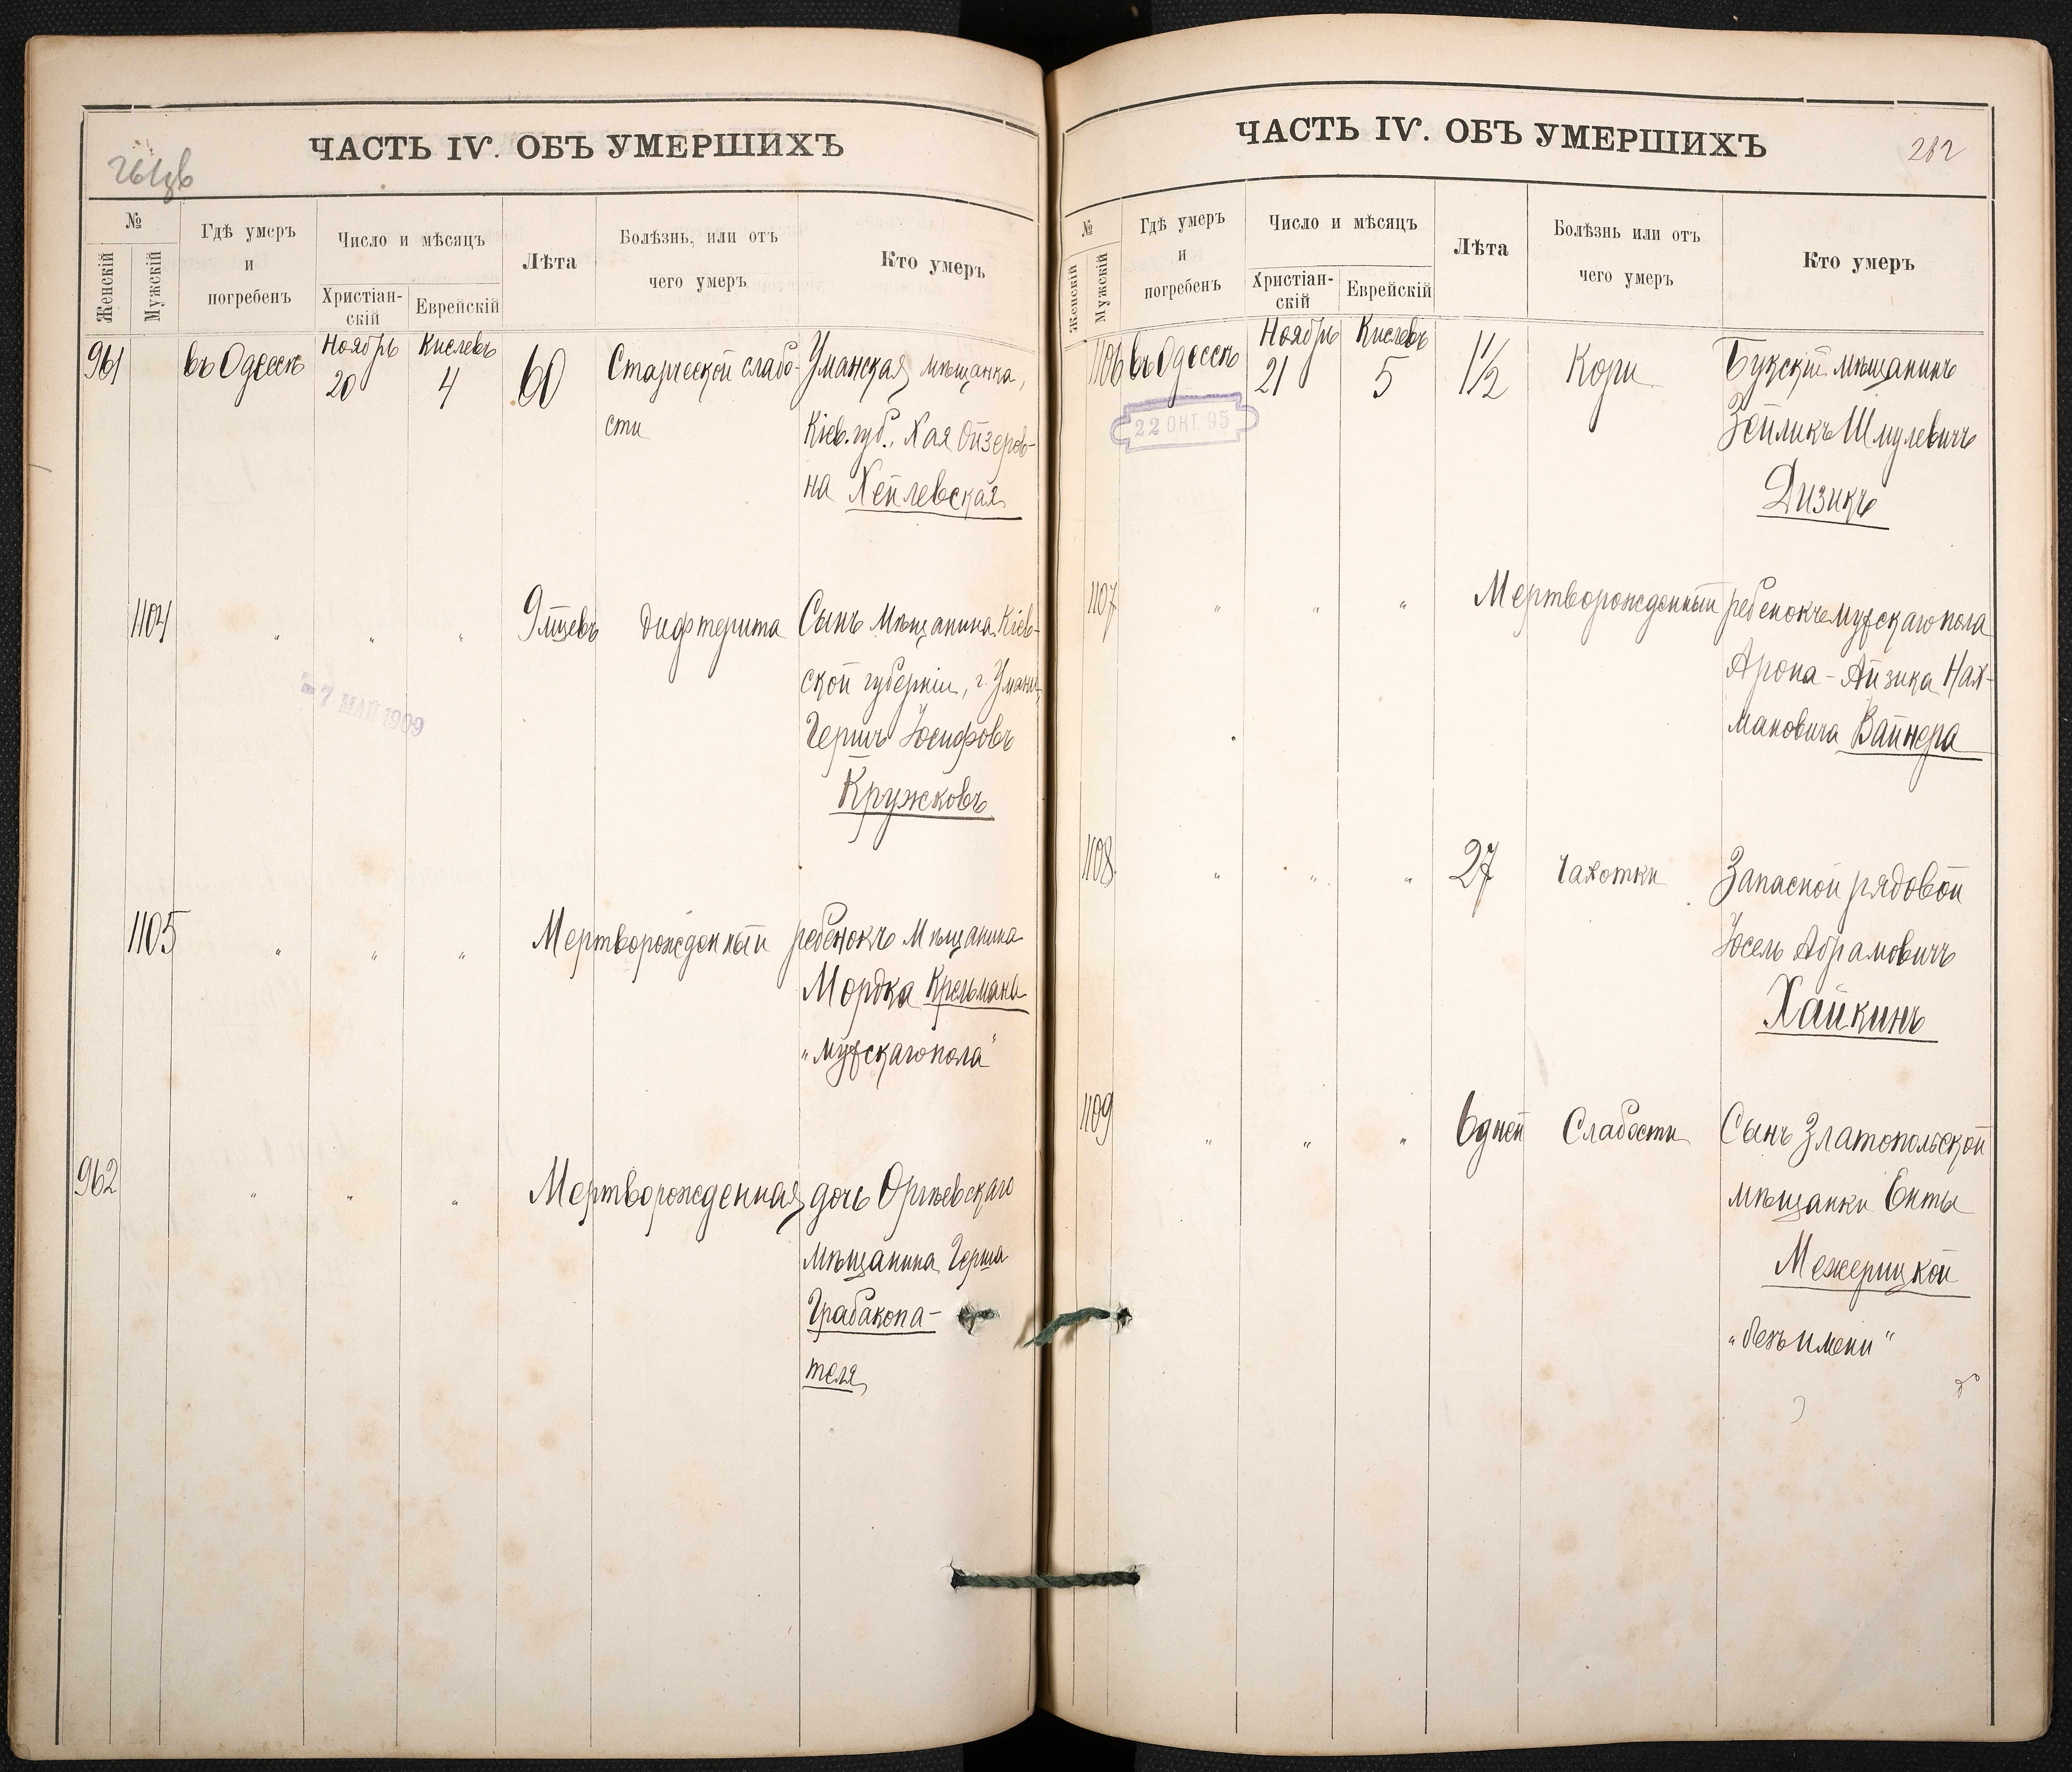 ЧАСТЬ IV. ОБЪ УМЕРШИХЪ
№
Женскій
Мужскій
Гдѣ умеръ
и
погребенъ
Число и мѣсяцъ
Христіан-
скій
Еврейскій
Лѣта
Болѣзнь, или отъ
чего умеръ
Кто умеръ
961 въ Одессѣ Ноябрь 20 Кислевъ 4 60 Старческой слабо- Уманская мѣщанка,
сти Кіев. губ., Хая Ойзеров-
на Хейлевская
1104 " " " 9 мцевъ Дифтерита Сынъ Мѣщанина Кіев-
ской губерніи, г. Умани,
Гершъ Іосифовъ
Кружковъ
- 7 МАЙ 1909
1105 " " " Мертворожденный ребенокъ Мѣщанина
Мордка Крельмана
"мужскаго пола"
962 " " " Мертворожденная дочь Оргѣевскаго
мѣщанина Герша
Грабакопа-
теля
ЧАСТЬ IV. ОБЪ УМЕРШИХЪ
262
№
Женскій
Мужскій
Гдѣ умеръ
и
погребенъ
Число и мѣсяцъ
Христіан-
скій
Еврейскій
Лѣта
Болѣзнь или отъ
чего умеръ
Кто умеръ
1106 въ Одессѣ Ноябрь 21 Кислевъ 5 1½ Кори Букскій мѣщанинъ
Зейликъ Шмулевичъ
Дизикъ
22 ОКТ. 95
1107 " " " Мертворожденный ребенокъ мужскаго пола
Арона-Айзика Нах-
мановича Вайнера
1108 " " " 27 Чахотки Запасной рядовой
Іосель Абрамовичъ
Хайкинъ
1109 " " " 6 дней Слабости Сынъ Златопольской
мѣщанки Енты
Межерицкой
"безъ имени"